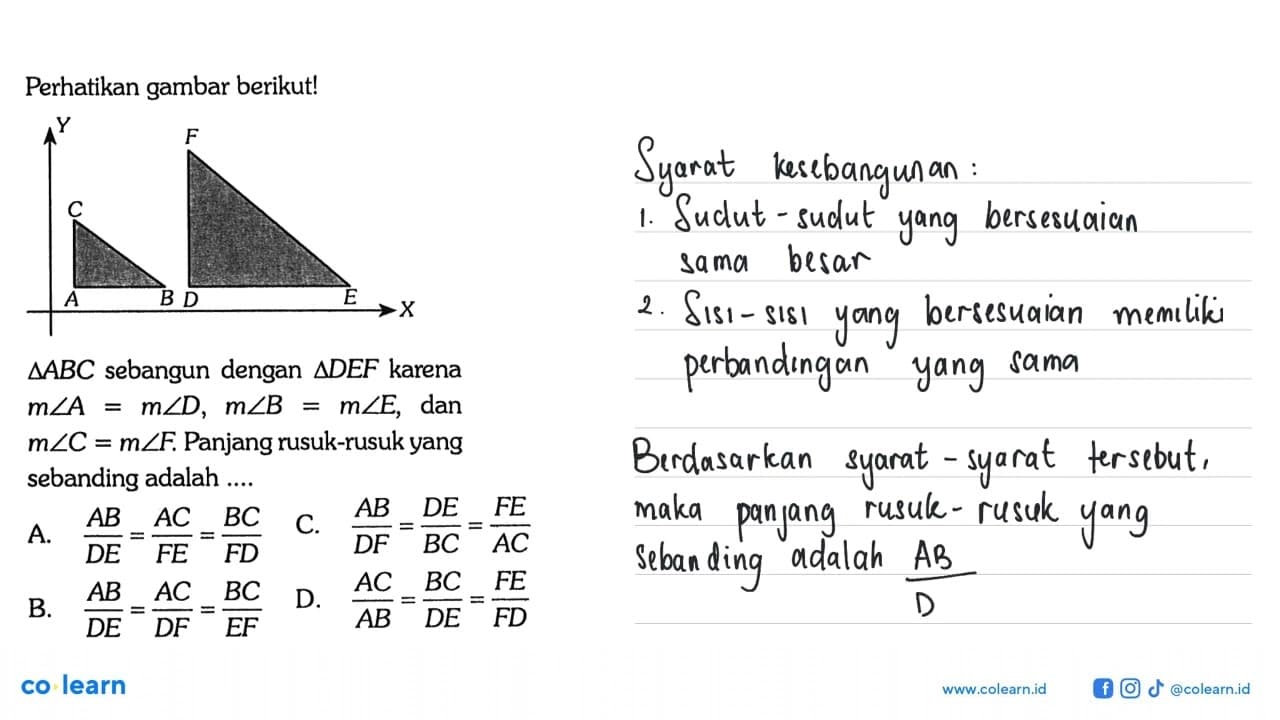 Perhatikan gambar berikut!
Y
F
C
A B D E X
ΔABC sebangun dengan ΔDEF karena
m∠A = m∠D, m∠B = m∠E, dan
m∠C = m∠F. Panjang rusuk-rusuk yang
sebanding adalah ....
A. AB/DE = AC/FE = BC/FD
B. AB/DE = AC/DF = BC/EF
C. AB/DF = DE/BC = FE/AC
D. AC/AB = BC/DE = FE/FD
Syarat kesebangunan :
1. Sudut - sudut yang bersesuaian
sama besar
2. Sisi - sisi yang bersesuaian memiliki
perbandingan yang sama
Berdasarkan syarat - syarat tersebut,
maka panjang rusuk - rusuk yang
sebanding adalah AB/D
co learn
www.colearn.id
@colearn.id